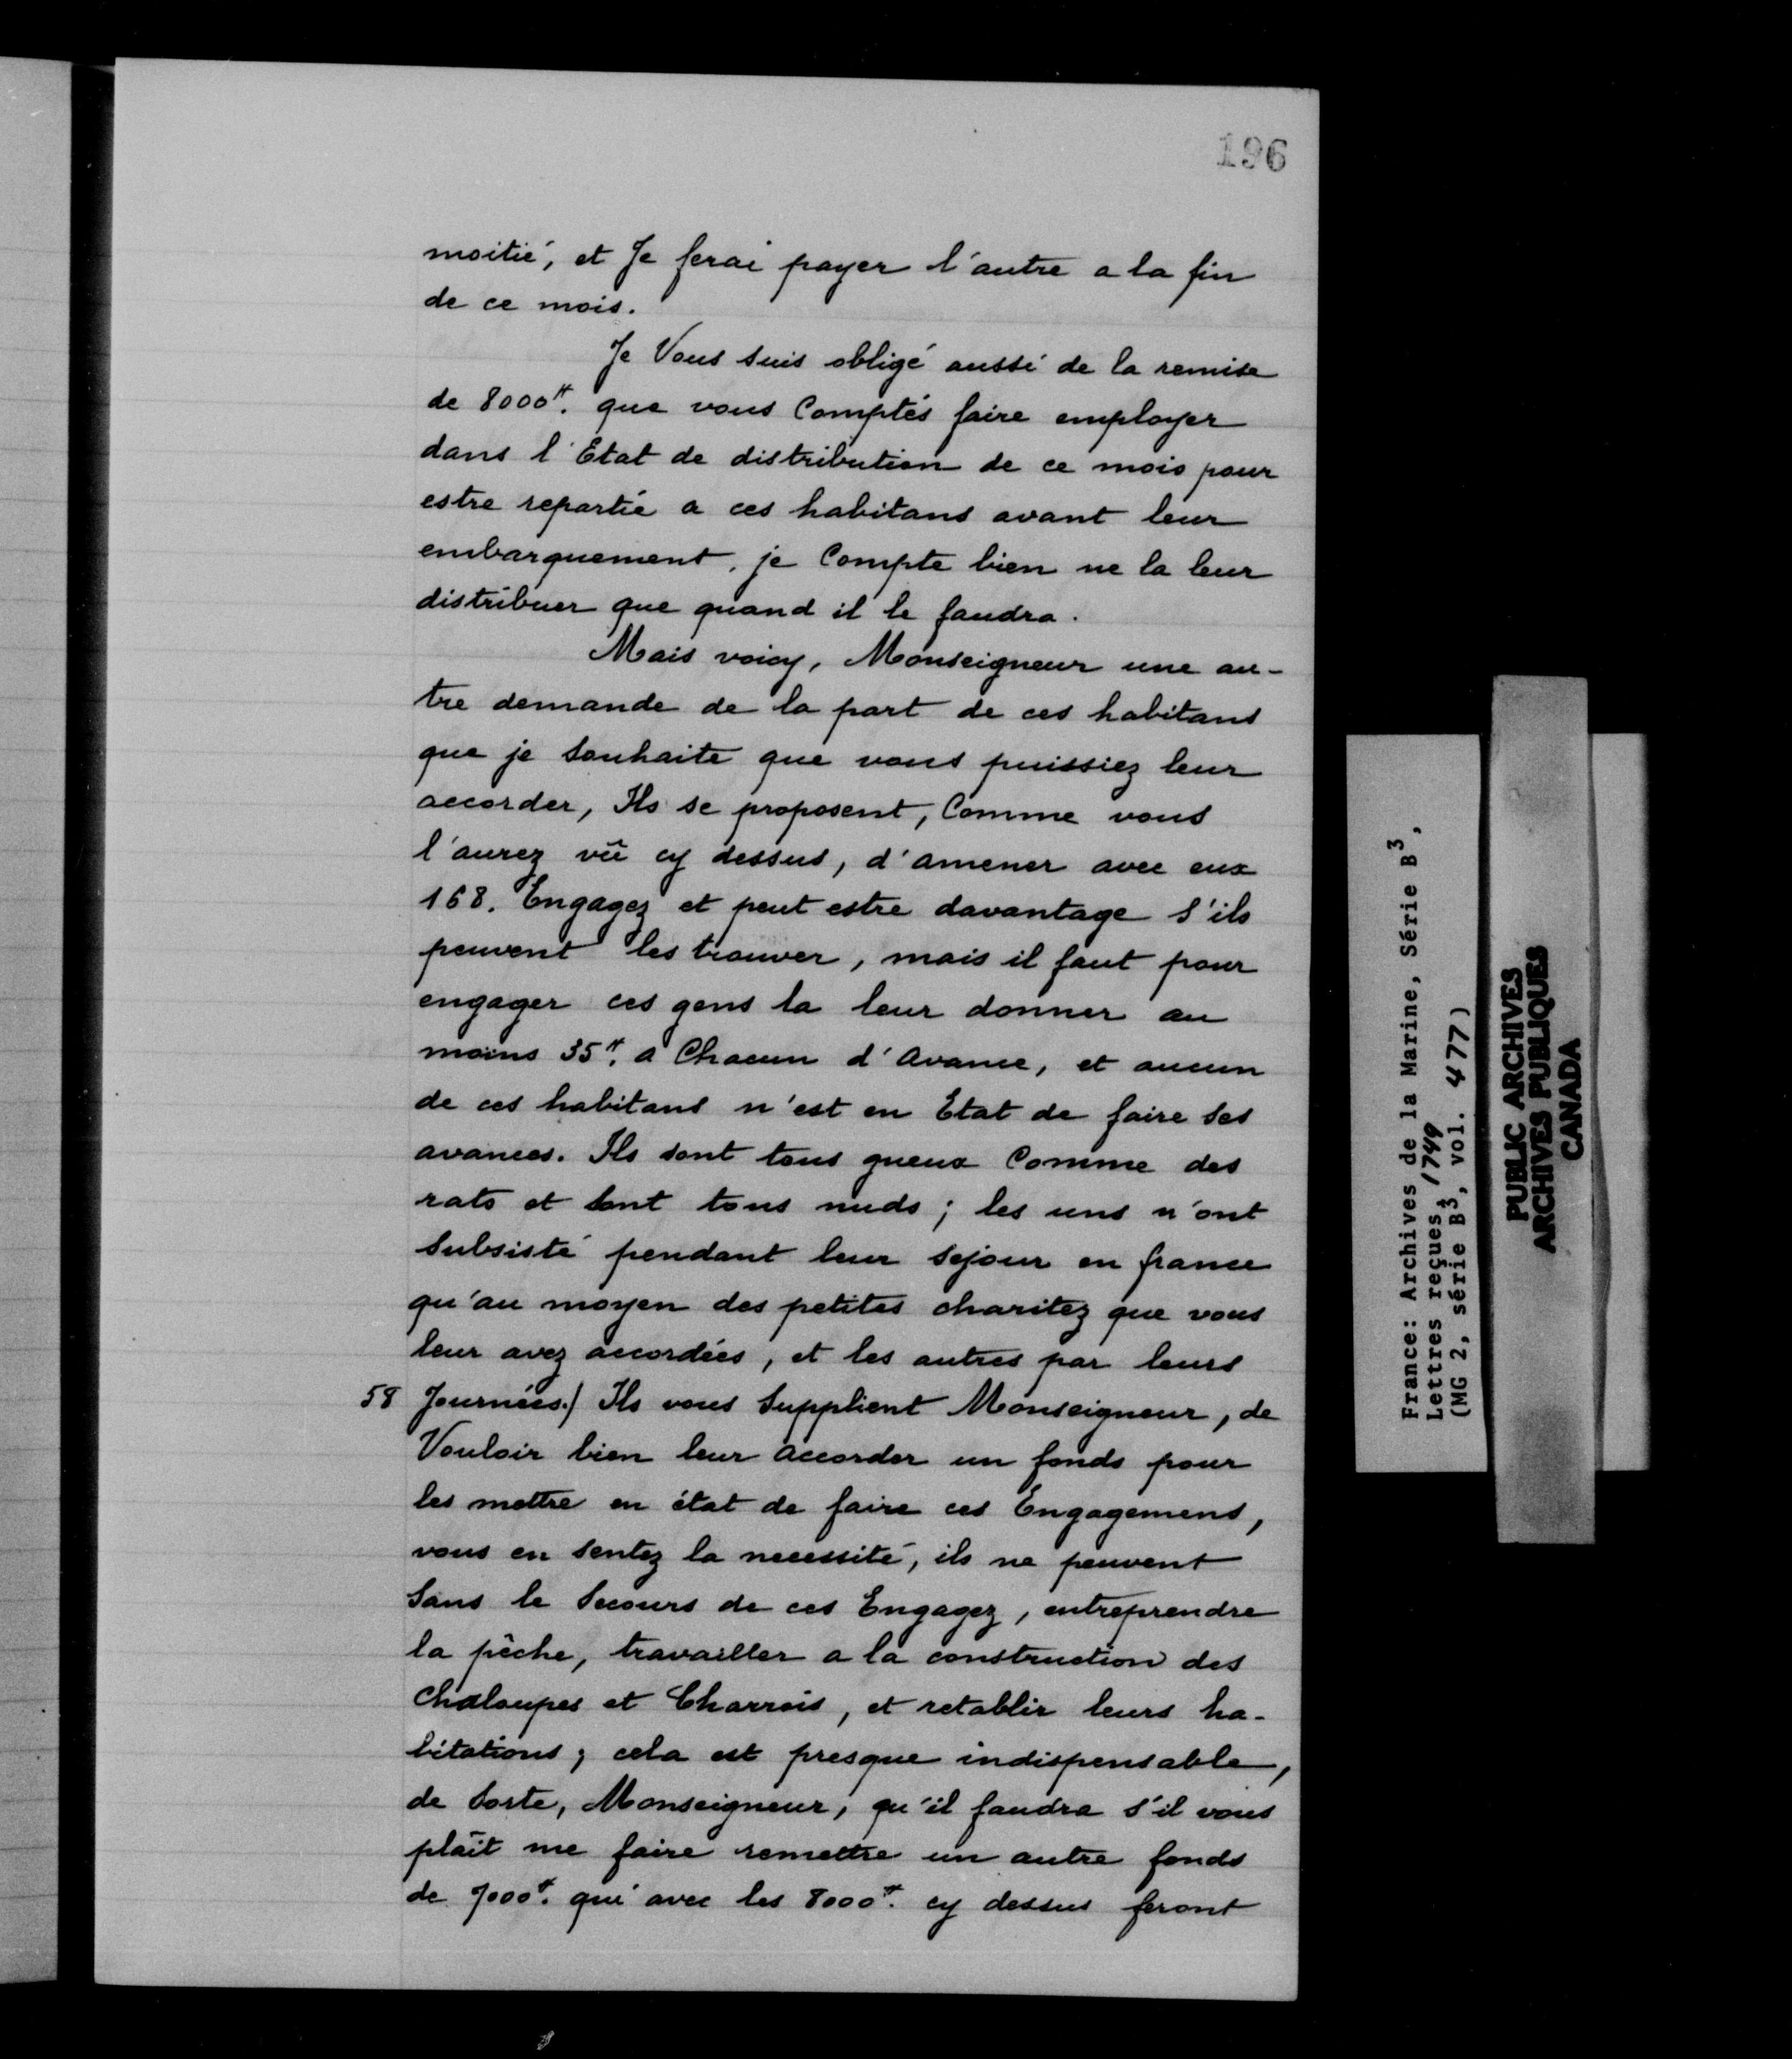 196
moitié, et Je ferai payer l'autre a la fin
de ce mois.
Je Vous suis obligé aussi de la remise
de 8000#. que vous Comptés faire employer
dans l'Etat de distribution de ce mois pour
estre repartie a ces habitans avant leur
embarquement, je Compte bien ne la leur
distribuer que quand il le faudra.
Mais voicy, Monseigneur une au-
tre demande de la part de ces habitans
que je souhaite que vous puissiez leur
accorder, Ils se proposent, Comme vous
l'aurez vû cy dessus, d'amener avec eux
168. Engagez et peut estre davantage s'ils
peuvent les trouver, mais il faut pour
engager ces gens la leur donner au
moins 35#. a Chacun d'Avance, et aucun
de ces habitans n'est en Etat de faire ses
avances. Ils sont tous gueux Comme des
rats et sont tous nuds; les uns n'ont
subsisté pendant leur sejour en france
qu'au moyen des petites charitez que vous
leur avez accordées, et les autres par leurs
58 Journées./ Ils vous Supplient Monseigneur, de
Vouloir bien leur accorder un fonds pour
les mettre en état de faire ces Engagemens,
vous en sentez la necessité, ils ne peuvent
Sans le Secours de ces Engagez, entreprendre
la pêche, travailler a la construction des
Chaloupes et Charrois, et retablir leurs ha-
bitations; cela est presque indispensable,
de Sorte, Monseigneur, qu'il faudra s'il vous
plaît me faire remettre un autre fonds
de 7000#. qui avec les 8000#. cy dessus feront
France: Archives de la Marine, Série B3,
Lettres reçues, 1749
(MG 2, série B3, vol. 477)
PUBLIC ARCHIVES
ARCHIVES PUBLIQUES
CANADA